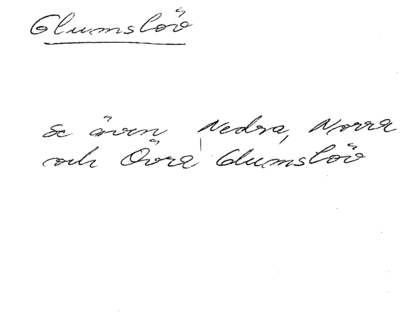 Glumslöv
Se även Nedra, Norra
och Övra Glumslöv